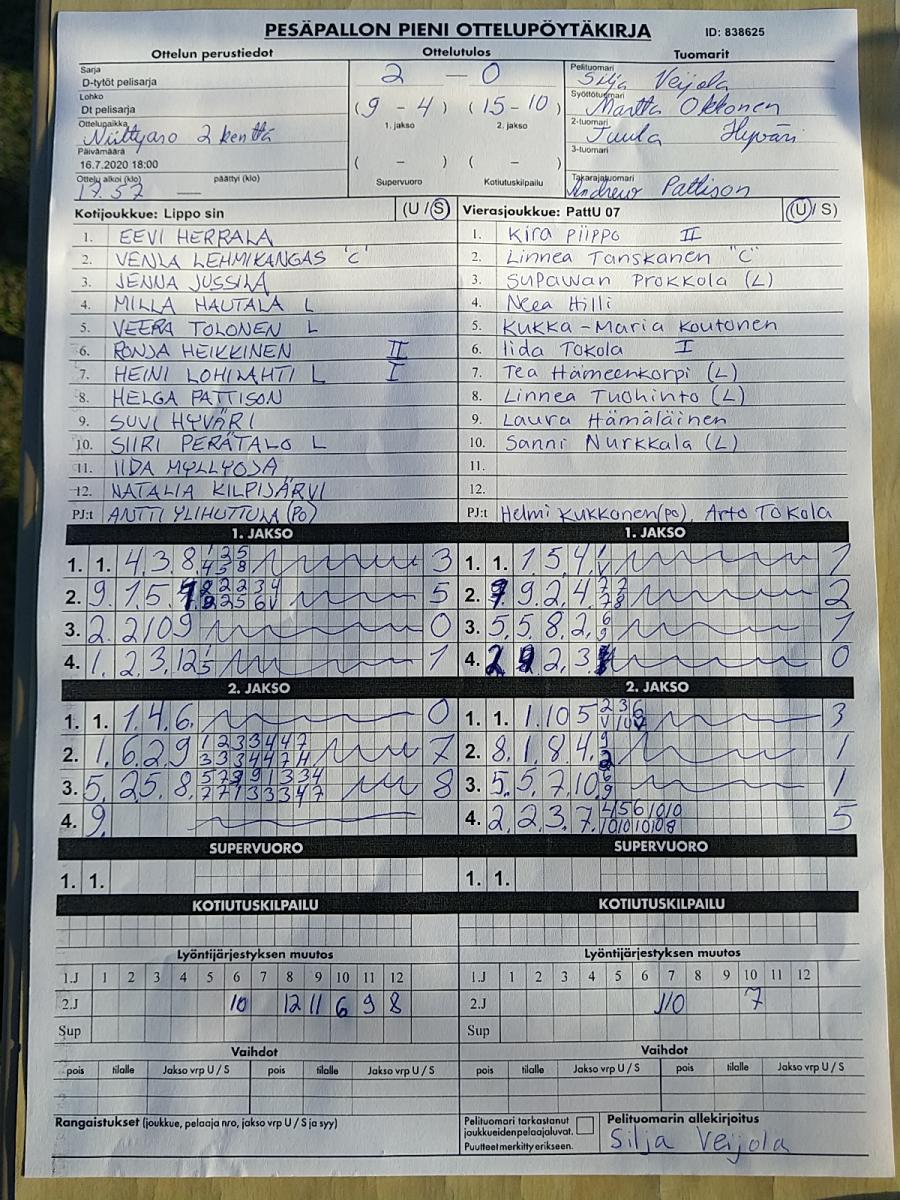 PESÄPALLON PIENI OTTELUPÖYTÄKIRJA ID: 838625
Ottelun perustiedot Ottelutulos Tuomarit
Sarja
D-tytöt pelisarja
Lohko
Dt pelisarja
Ottelupaikka
Niittyaro 2 kenttä
Päivämäärä
16.7.2020 18:00
Ottelu alkoi (klo) päättyi (klo)
17.57 —
2 — 0
(9 - 4) (15 - 10)
1. jakso 2. jakso
( - ) ( - )
Supervuoro Kotiutuskilpailu
Pelituomari
Silja Veijola
Syöttötuomari
Martta Okkonen
2-tuomari
Tuula Hyväri
3-tuomari
Takarajatuomari
Andrew Pattison
Kotijoukkue: Lippo sin (U / S)
1. EEVI HERRALA
2. VENLA LEHMIKANGAS "C"
3. JENNA JUSSILA
4. MILLA HAUTALA L
5. VEERA TOLONEN L
6. RONJA HEIKKINEN II
7. HEINI LOHILAHTI L I
8. HELGA PATTISON
9. SUVI HYVÄRI
10. SIIRI PERÄTALO L
11. IIDA MYLLYOJA
12. NATALIA KILPIJÄRVI
PJ:t ANTTI YLIHUTTULA (PO)
Vierasjoukkue: PattU 07 (U / S)
1. Kira Piippo II
2. Linnea Tanskanen "C"
3. Supawan Prokkola (L)
4. Neea Hilli
5. Kukka-Maria Koutonen
6. Iida Tokola I
7. Tea Hämeenkorpi (L)
8. Linnea Tuohinto (L)
9. Laura Hämäläinen
10. Sanni Nurkkala (L)
11.
12.
PJ:t Helmi Kukkonen (po), Arto Tokola
1. JAKSO 1. JAKSO
1. 1. 4. 3. 8. 3
2. 9. 1. 5. 5
3. 2. 2 10 9 0
4. 1. 2. 3. 12 1
1. 1. 1. 5. 4. 1
2. 9. 2. 4. 2
3. 5. 5. 8. 2. 1
4. 2. 3 0
2. JAKSO 2. JAKSO
1. 1. 1. 4. 6. 0
2. 1. 6. 2. 9 7
3. 5. 2 5. 8. 8
4. 9.
1. 1. 1. 10 5 3
2. 8. 1. 8 4. 1
3. 5. 5. 7. 10. 1
4. 2. 2. 3. 7. 5
SUPERVUORO SUPERVUORO
1. 1. 1. 1.
KOTIUTUSKILPAILU KOTIUTUSKILPAILU
Lyöntijärjestyksen muutos Lyöntijärjestyksen muutos
1.J 1 2 3 4 5 6 7 8 9 10 11 12
2.J 10 12 11 6 9 8
Sup
1.J 1 2 3 4 5 6 7 8 9 10 11 12
2.J 10 7
Sup
Vaihdot Vaihdot
pois tilalle Jakso vrp U / S pois tilalle Jakso vrp U / S
pois tilalle Jakso vrp U / S pois tilalle Jakso vrp U / S
Rangaistukset (joukkue, pelaaja nro, jakso vrp U / S ja syy)
Pelituomari tarkastanut
joukkueiden pelaajaluvat.
Puutteet merkitty erikseen.
Pelituomarin allekirjoitus
Silja Veijola